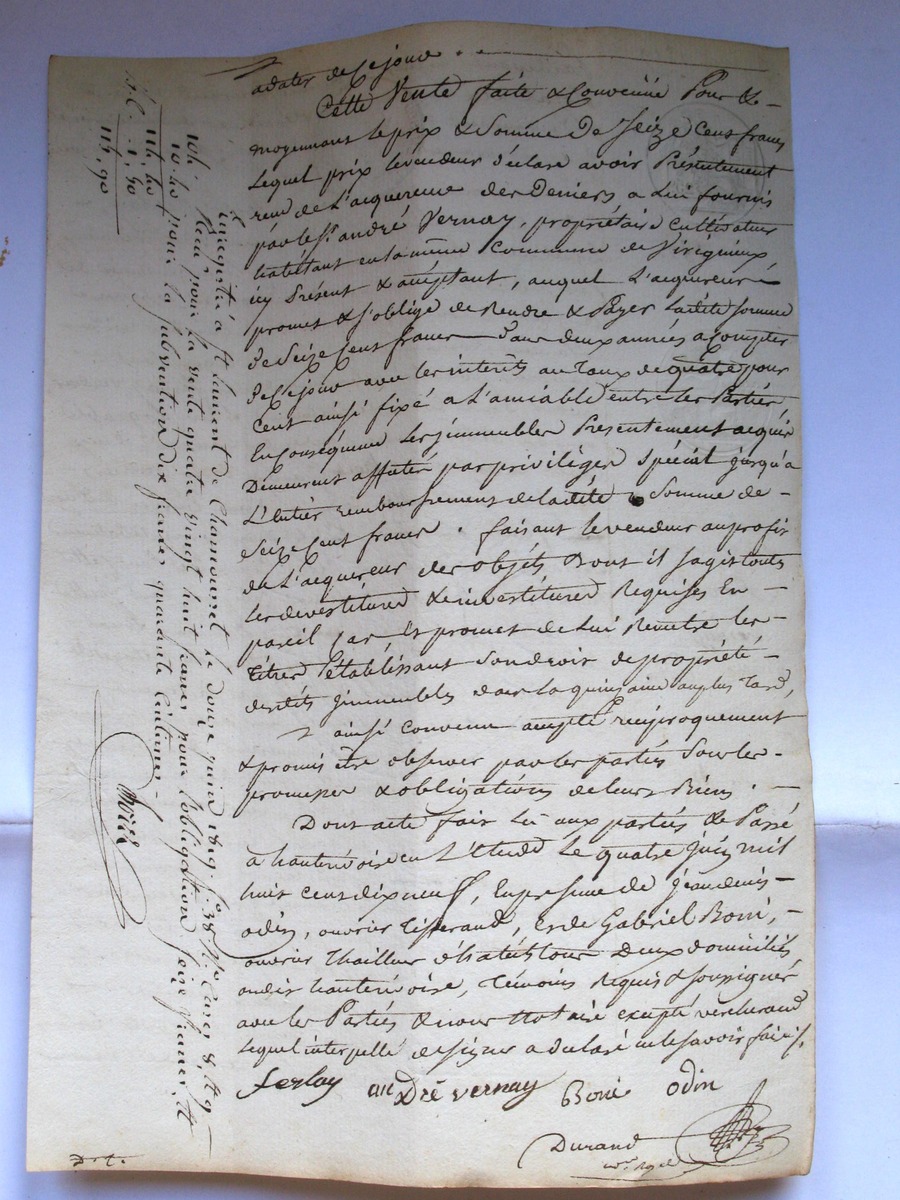 a dater de Ce jour.
Cette Vente faite & Convenüe Pour &
moyennant le prix & Somme De Seize Cent francs
Lequel prix le vendeur déclare avoir Présentement
reçu de L'acquereur des Deniers a Lui fournis
par le Sr. andré Vernay, propriétaire Cultivateur
habitant en la même Commune de Virigneux,
icy Présent & acceptant, auquel L'acquereur
promet & s'oblige de Rendre & Payer Ladite Somme
de Seize Cent francs Dans deux années a Compter
de Ce jour avec les interêts au Taux de quatre pour
Cent ainsi fixé a L'amiable entre les Parties
En Conséquence Les jmmeubles Présentement acquis
Demeurent affectés par privilége Spécial jusqu'a
L'Entier remboursement de ladite Somme de
Seize Cent francs. faisant le vendeur au profit
de L'acquereur des objets Dont il s'agit toutes
les devestitures & investitures Requises En
pareil Cas Et promet de Lui Remettre les
Titres Etablissant Son droit de propriété
desdits jmmeubles dans La quinzaine au plus Tard,
ainsi convenu accepté réciproquement
& promis être observé par les parties Sous les
promesses & obligations de leurs Biens.
Dont acte fait Lu aux parties & Passé
a hauterivoire en L'Etude Le quatre juin mil
huit cent dix neuf, En présence de Jean denis
odin, ouvrier Tisserand, Et de Gabriel Boné,
ouvrier Thailleur d'habits tous Deux domiciliés
audit hauterivoire, Témoins Requis & soussignés
avec les Parties & nous Notaire excepté
Lequel interpellé de signer a déclaré ne le savoir faire ./.
ferlay andré vernay Boné odin
Durand
Nre. Royal
Enregistré a St Laurent de Chamousset le douze juin 1819. fo. 38 Vo. Cases 8, et 9
Reçu pour la vente quatre vingt huit francs pour l'obligation seize francs, et
10. 40 pour la subvention dix francs quarante Centimes
104
10. 40
114, 40
1, 50
115, 90